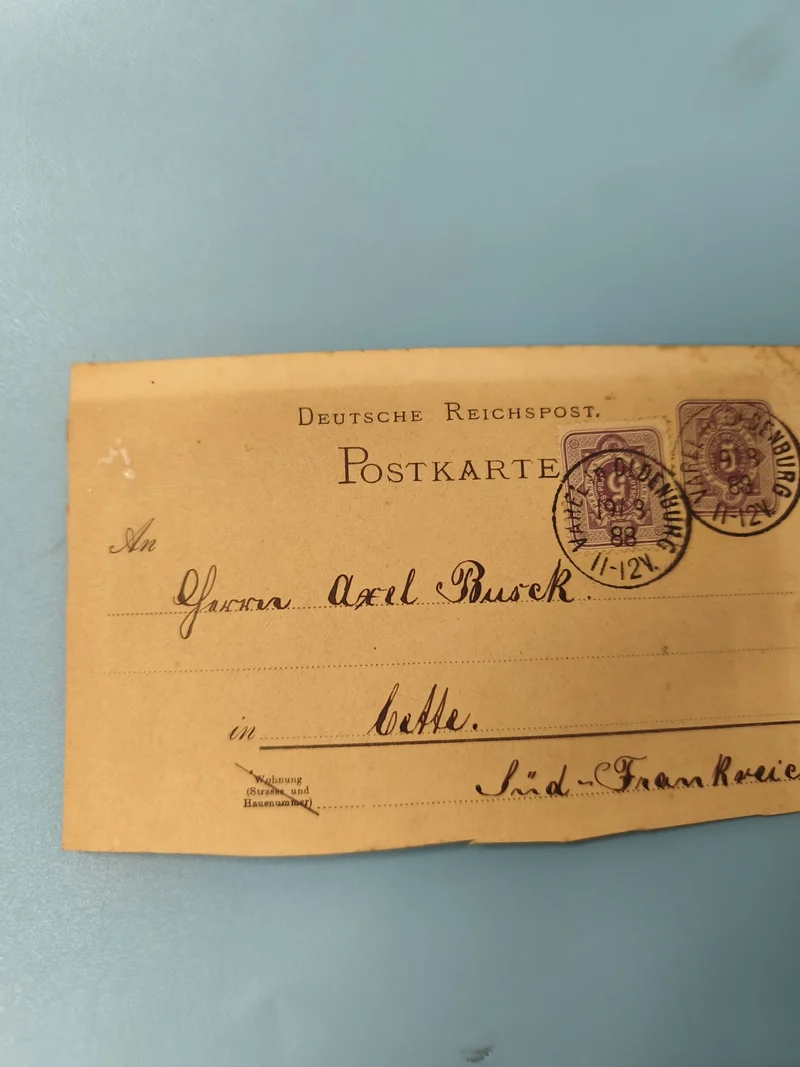 DEUTSCHE REICHSPOST.
POSTKARTE
VAREL i. OLDENBURG
19 8
88
11-12V.
VAREL OLDENBURG
19 8
88
11-12V.
An
Herrn Axel Busck.
in Cette.
Wohnung
(Strasse und
Hausnummer)
Süd-Frankreic